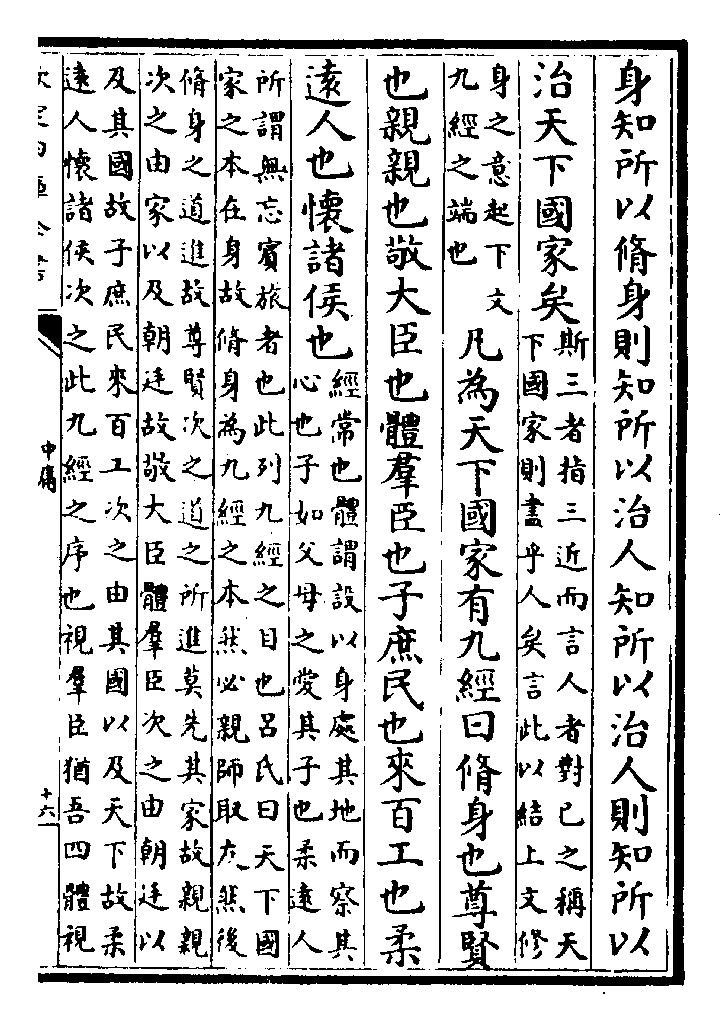 身知所以脩身則知所以治人知所以治人則知所以
治天下國家矣
斯三者指三近而言人者對己之稱天
下國家則盡乎人矣言此以結上文修
身之意起下文
九經之端也
凡為天下國家有九經曰脩身也尊賢
也親親也敬大臣也體羣臣也子庶民也來百工也柔
遠人也懷諸侯也
經常也體謂設以身處其地而察其
心也子如父母之愛其子也柔遠人
所謂無忘賓旅者也此列九經之目也呂氏曰天下國
家之本在身故脩身為九經之本然必親師取友然後
脩身之道進故尊賢次之道之所進莫先其家故親親
次之由家以及朝廷故敬大臣體羣臣次之由朝廷以
及其國故子庶民來百工次之由其國以及天下故柔
遠人懷諸侯次之此九經之序也視羣臣猶吾四體視
中庸
十六